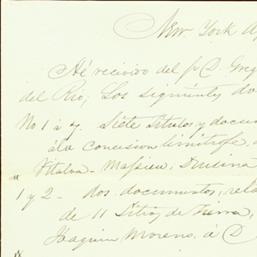 New York Ag
Hé recivido del Sr D. Greg
del Rio, Los seguientes do
No 1 á 7. Siete titulos y docum
á la concesion limitrofe,
1 y 2 - dos documentos, rela
de 11 Sitios de tierra,
Joaquin Moreno, á D